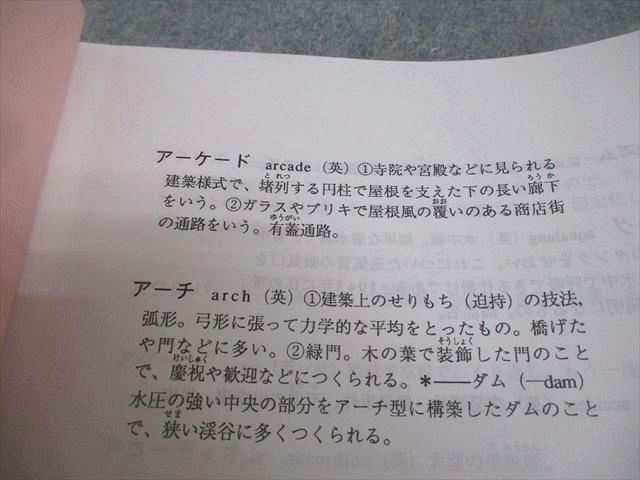 アーケード arcade（英）①寺院や宮殿などに見られる
建築様式で、堵列する円柱で屋根を支えた下の長い廊下
をいう。②ガラスやブリキで屋根風の覆いのある商店街
の通路をいう。有蓋通路。
アーチ arch（英）①建築上のせりもち（迫持）の技法，
弧形。弓形に張って力学的な平均をとったもの。橋げた
や門などに多い。②緑門。木の葉で装飾した門のこと
で、慶祝や歓迎などにつくられる。＊――ダム（―dam）
水圧の強い中央の部分をアーチ型に構築したダムのこと
で、狭い渓谷に多くつくられる。